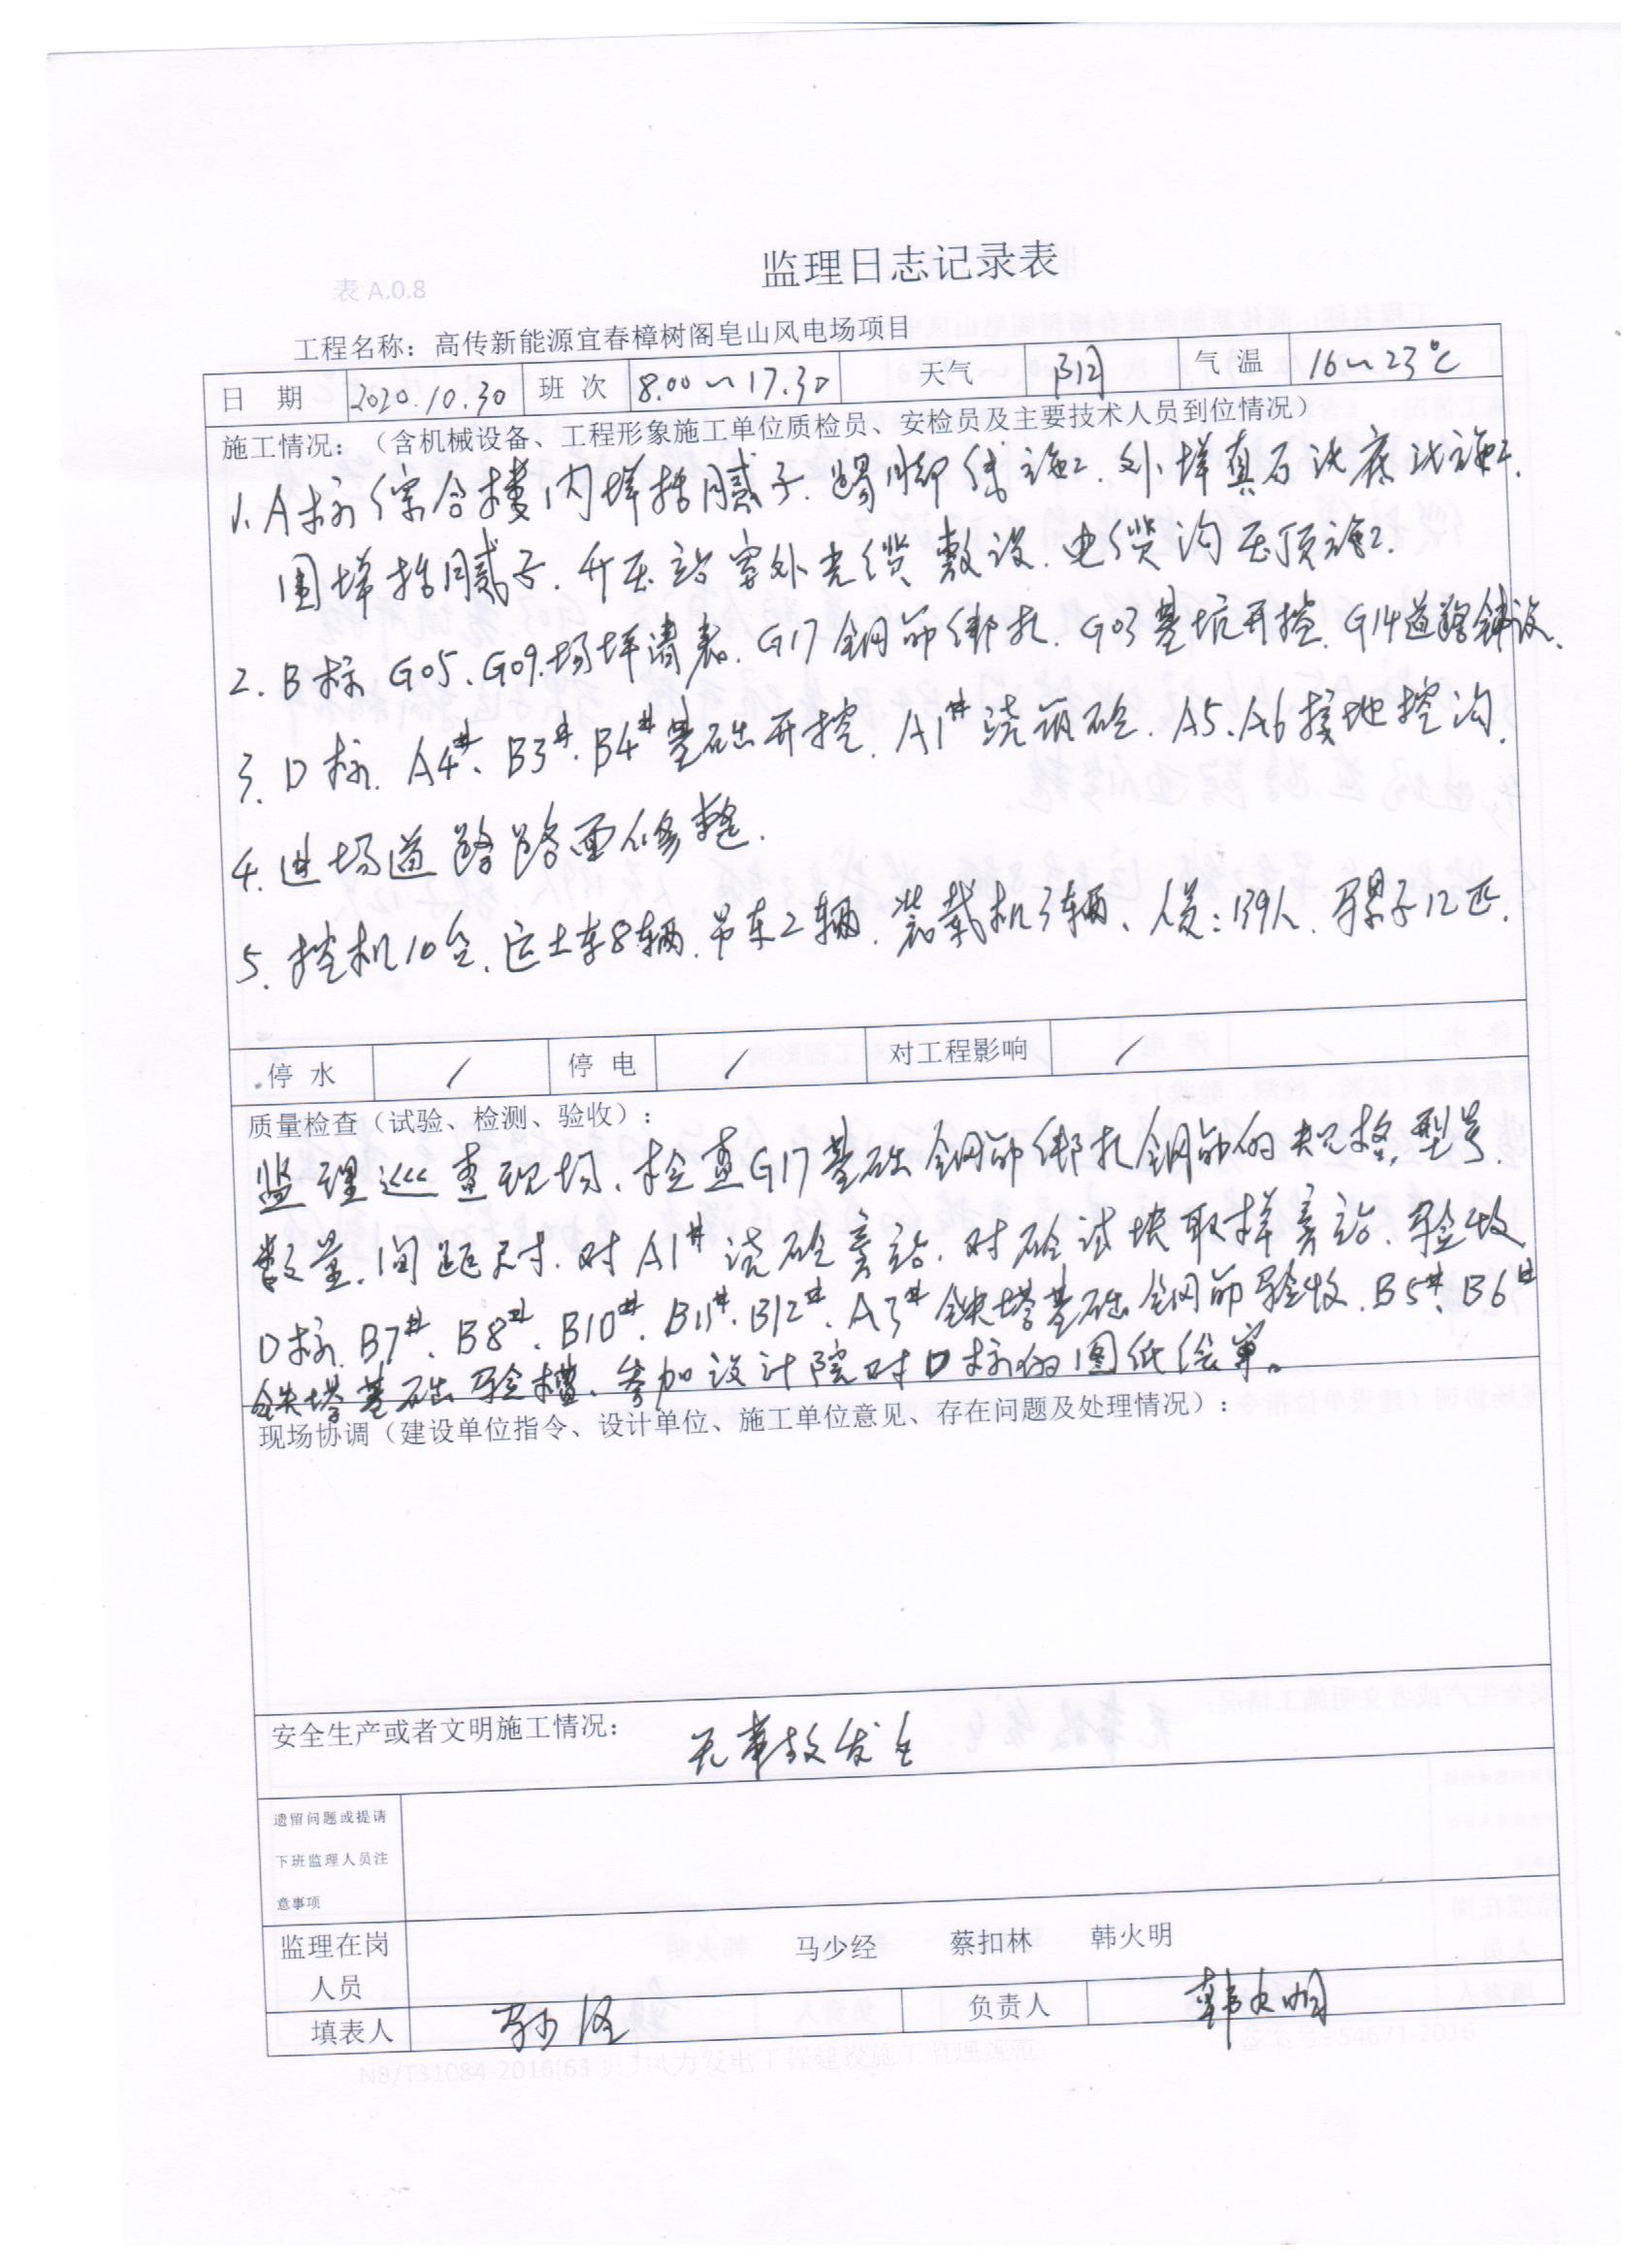 监理日志记录表
表 A.0.8
工程名称：高传新能源宜春樟树阁皂山风电场项目
日 期 2020.10.30 班 次 8.00～17.30 天气 阴 气 温 16～23℃
施工情况：（含机械设备、工程形象施工单位质检员、安检员及主要技术人员到位情况）
1、A标综合楼内墙批腻子、踢脚线施工、外墙真石漆底漆施工.
围墙批腻子、升压站室外光缆敷设、电缆沟压顶施工.
2、B标 G05、G09场坪清表、G17钢筋绑扎、G03基坑开挖、G14道路铺设、
3、D标、A4#、B3#、B4#基础开挖、A1#浇筑砼、A5、A6接地挖沟.
4、进场道路路面修整.
5、挖机10台、运土车8辆、吊车2辆、装载机3辆、人员：139人、骡子12匹.
停 水 / 停 电 / 对工程影响 /
质量检查（试验、检测、验收）：
监理巡查现场、检查G17基础钢筋绑扎钢筋的规格,型号、
数量、间距尺寸、对A1#浇砼旁站、对砼试块取样旁站、验收
D标、B7#、B8#、B10#、B11#、B12#、A3#铁塔基础钢筋验收、B5#、B6#
铁塔基础验槽、参加设计院对D标的图纸绘审。
现场协调（建设单位指令、设计单位、施工单位意见、存在问题及处理情况）：
安全生产或者文明施工情况： 无事故发生
遗留问题或提请
下班监理人员注
意事项
监理在岗 马少经 蔡扣林 韩火明
人员
填表人 负责人 韩火明